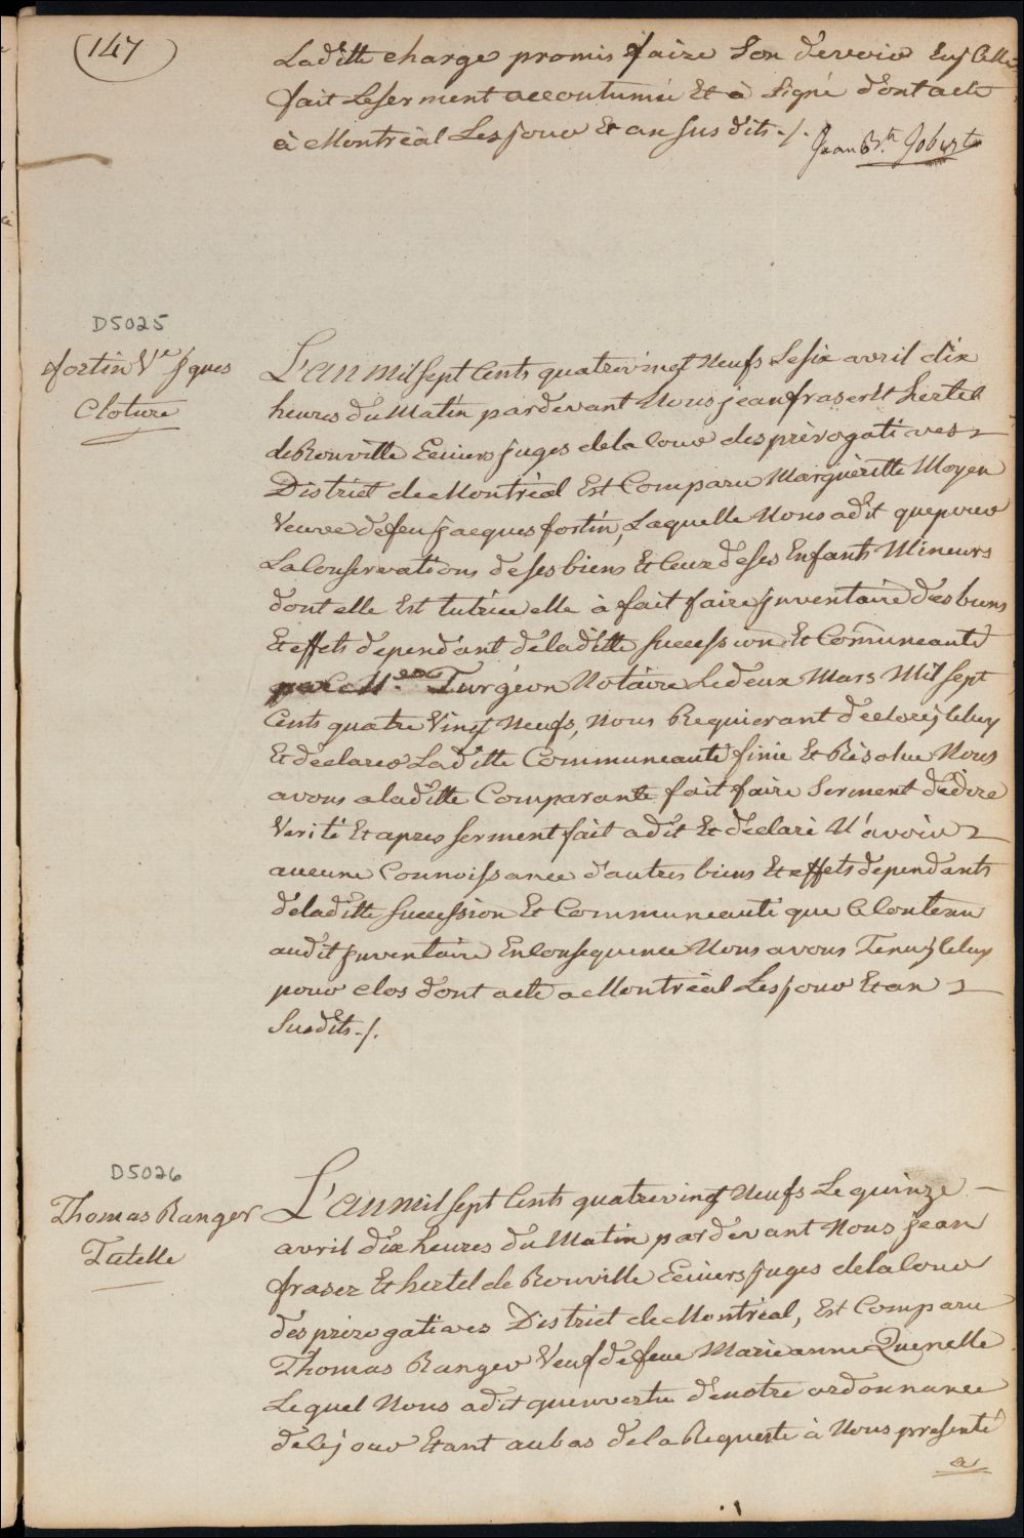 (147)
Laditte charge promis faire Son devoir
fait Le Serment accoutumée Et à Signé dont acte
à Montréal Les jour Et an Sus dits ./.
Jean Bte Joberts
D5025
fortin Ve Jques
Cloture
L'an mil Sept Cents quatrevingt Neufs Le Six avril dix
heures du Matin pardevant Nous jean fraser Et hertel
de Rouville Ecuiers juges de la Cour des prérogatives
District de Montréal Est Comparu Marguèritte Moyen
Veuve de feu jacques fortin, Laquelle Nous a dit que pour
La Conservations de Ses biens Et Ceux de Ses Enfants Mineurs
dont elle Est tutrice elle à fait faire jnventaire des biens
Et effets dependant de laditte Succession Et Communeauté
par Turgéon Notaire Le deux Mars Mil Sept
Cents quatre Vingt Neufs, Nous Requierant de clore jCeluy
Et declarer Laditte Communeauté finie Et Résolue Nous
avons a laditte Comparante fait faire Serment de dire
Verité Et apres Serment fait a dit Et declaré N'avoir
aucune Connoissance d'autres biens Et effets dependants
de laditte Succession Et Communeauté que Le Contenu
audit jnventaire En Consequence Nous avons Tenu jCeluy
pour clos dont acte a Montréal Les jour Et an
Susdits ./.
D5026
Thomas Ranger
Tutelle
L'an mil Sept Cents quatrevingt Neufs Le quinze
avril dix heures du Matin pardevant Nous jean
fraser Et hertel de Rouville Ecuiers juges de la Cour
des prérogatives District de Montréal, Est Comparu
Thomas Ranger Veuf de feue Marieanne Quenelle
Lequel Nous a dit qu'en vertu de notre ordonnance
de Ce jour Etant au bas de la Requeste à Nous presenté
a